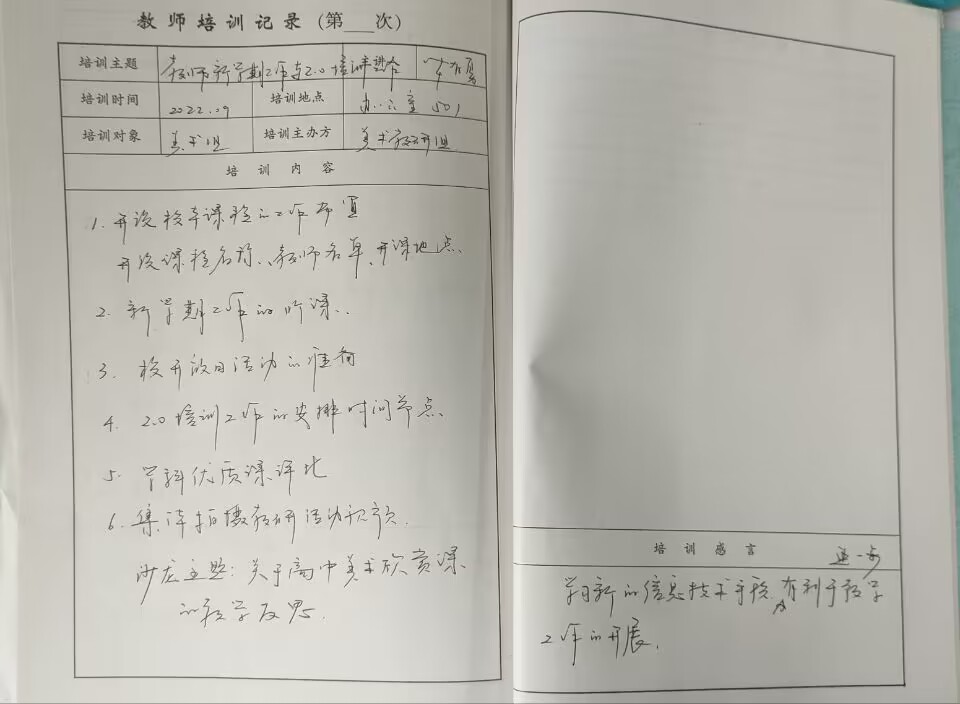 教师培训记录（第___次）
培训主题 教师新学期工作与2.0培训 主讲人
培训时间 2022.09 培训地点 办公室501
培训对象 美术组 培训主办方 美术教研组
培训内容
1. 开设校本课程的工作布置
开设课程名称、教师名单、开课地点、
2. 新学期工作的听课..
3. 校开放日活动的准备
4. 2.0培训工作的安排时间节点
5. 学科优质课评比
6. 集体拍摄教研活动视频.
沙龙主题：关于高中美术欣赏课
的教学反思.
培训感言
进一步
学习新的信息技术手段,有利于教学
工作的开展.